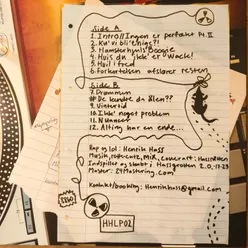 Side A
1. Intro // Ingen er perfekt Pt. II
2. Ka' vi bli' enige?!
3. Hamsterhjuls Boogie
4. Hvis du 'ikk' er wack!
5. Hvil i fred
6. Forkortelsen afslører resten
Side B
7. Drømmen
8. De kendte da Ølen??
9. Vintertid
10. Ikke' noget problem
11. Nuancer
12. Alting har en ende...
Rap og lol: Henrik Hass
Musik, cuts, mix, coverart: Hass
Indspillet og skabt i Hassgrotten
Master: E4Mastering.com
Kontakt/booking: Henrikhass@gmail.com
HHLP02